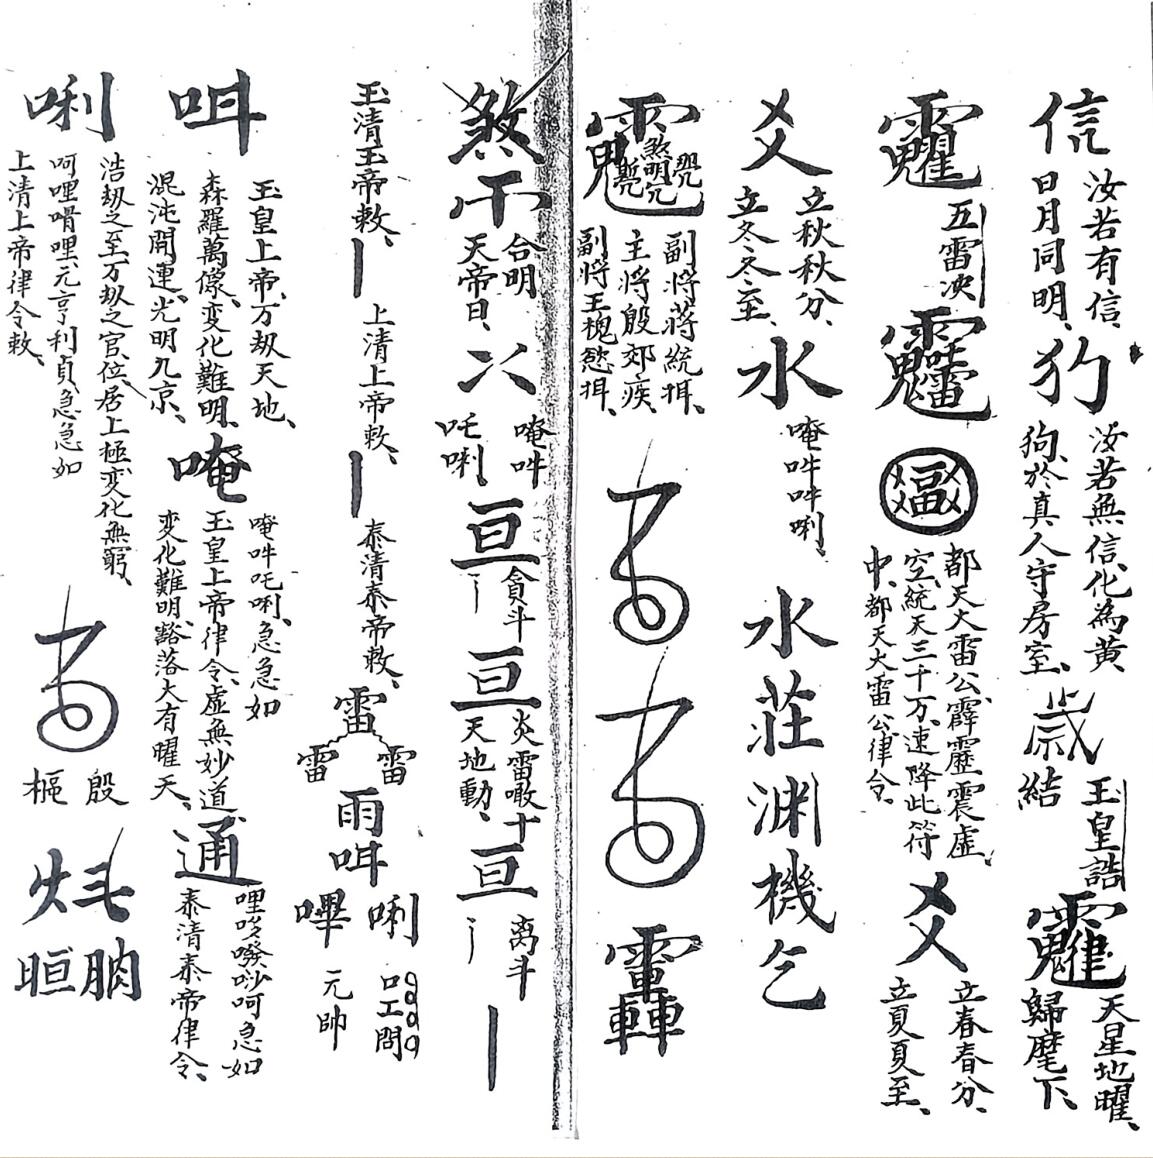 信
汝若有信、
日月同明、
犳
汝若無信、化為黄
狗、於真人守房室、
歳
玉皇誥
結
天星地曜、
歸麾下、
五雷決
都天大雷公、霹靂震虚
空、統天三十万、速降此符
中、都天大雷公律令、
㐅
立春春分、
立夏夏至、
㐅
立秋秋分、
立冬冬至、
水
唵吽吽唎、
水
莊
渊
機
乞
煞明
副將蒋統揖、
主將殷郊疾、
副將王槐慾揖、
煞
合明
天帝日、
唵吽
吒唎
亘
貪斗
亘
炎雷噉十
天地動、
亘
离斗
玉清玉帝敕、
上清上帝敕、
泰清泰帝敕、
雷
雷 雷
雨
咡
唎
嗶
口工問
元帥
咡
玉皇上帝、万刼天地、
森羅萬像、变化難明、
混沌開運、光明九京、
唵
唵吽吒唎、急急如
玉皇上帝律令、虚無妙道、
变化難明、豁落大有曜天、
通
哩哆㗶吵呵急如
泰清泰帝律令、
唎
浩刼之至、万刼之官、位居上極、变化無窮、
呵哩嗗哩、元亨利貞、急急如
上清上帝律令敕、
殷
枢